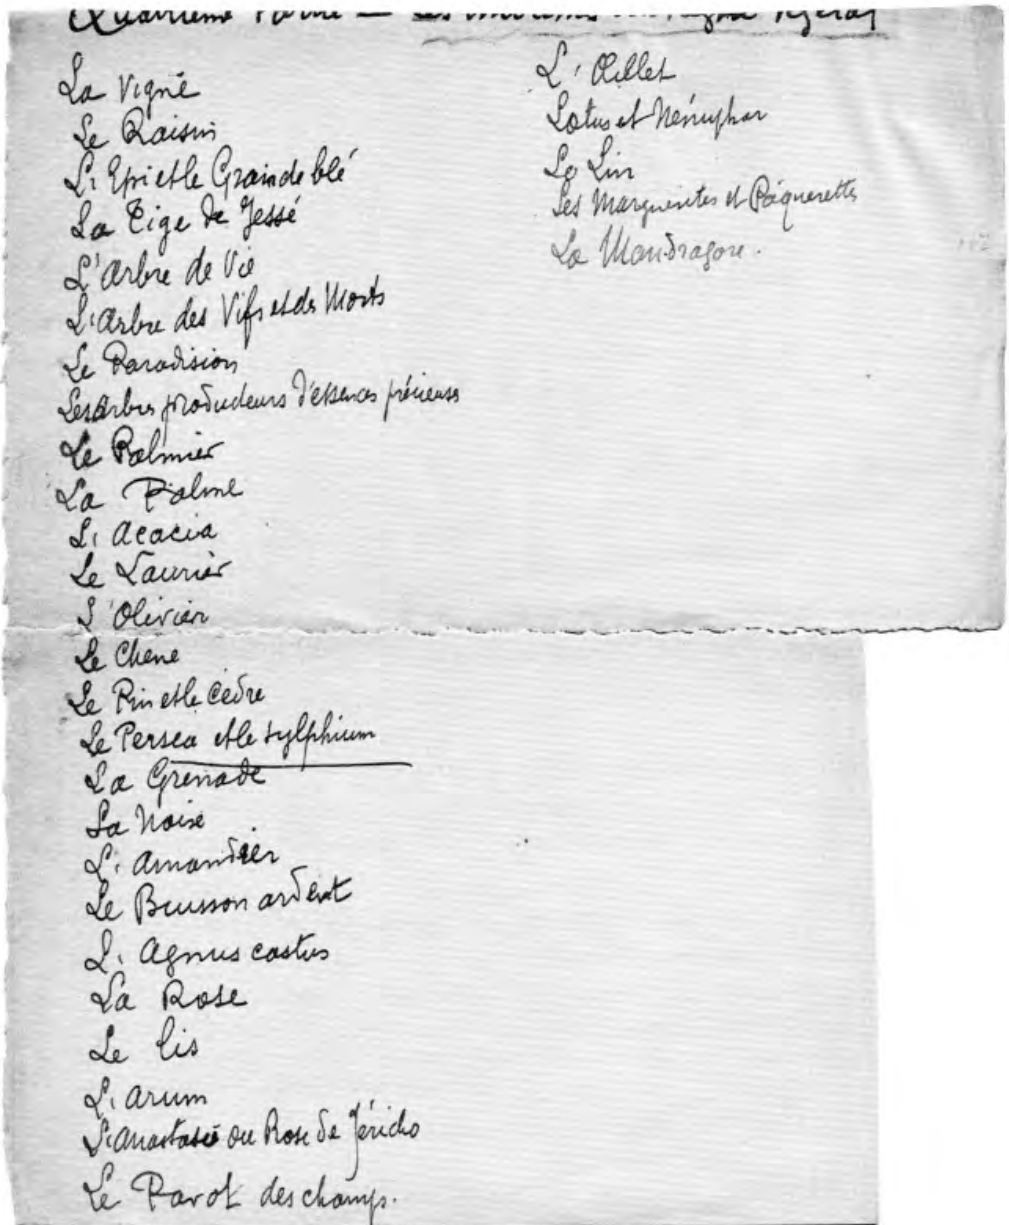 Quatrième Partie — Les
La Vigne
Le Raisin
L'Epi et le Grain de blé
La Tige de Jessé
L'Arbre de Vie
L'Arbre des Vifs et des Morts
Le Paradision
Les Arbres producteurs d'essences précieuses
Le Palmier
La Palme
L'Acacia
Le Laurier
L'Olivier
Le Chêne
Le Pin et le Cèdre
Le Persea et le Sylphium
La Grenade
La Noix
L'Amandier
Le Buisson ardent
L'Agnus castus
La Rose
Le lis
L'Arum
L'Anastasie ou Rose de Jéricho
Le Pavot des champs.
L'Œillet
Lotus et Nénuphar
Le Lin
Les Marguerites et Pâquerettes
La Mandragore.